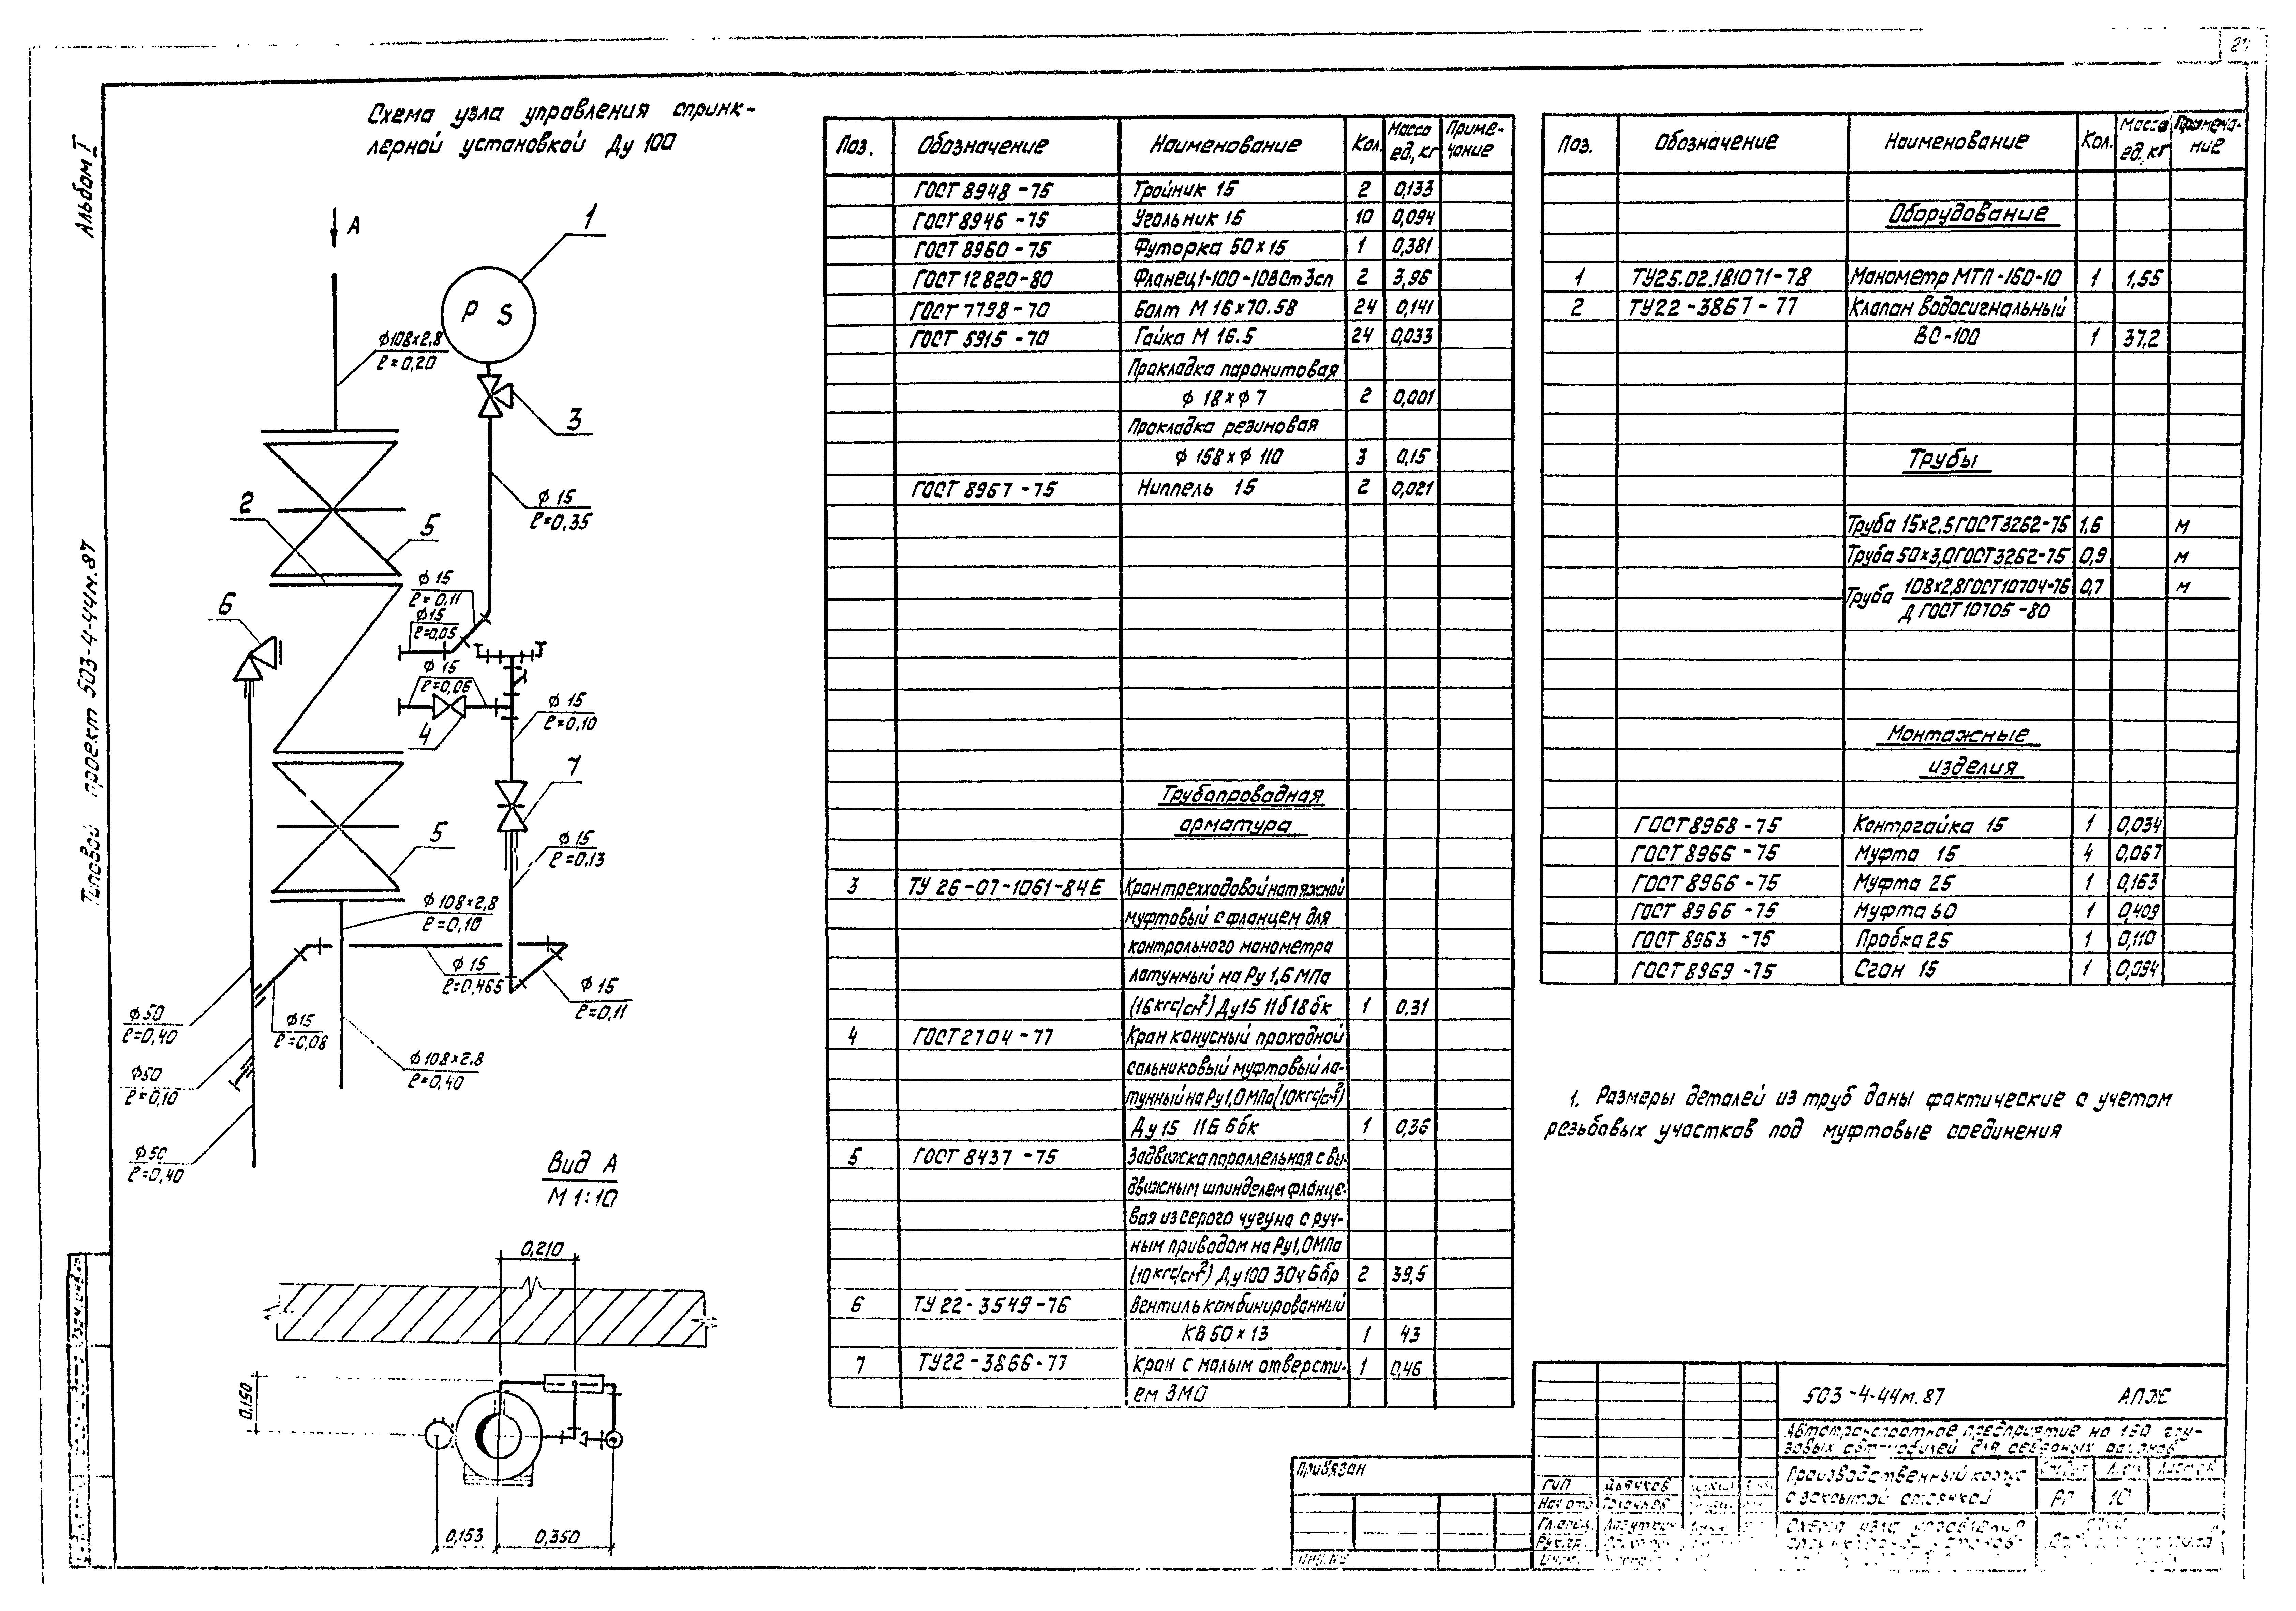 21
Альбом I
Типовой проект 503-4-44м.87
Схема узла управления спринк-
лерной установкой Ду 100
А
1
P S
ф108×2,8
ℓ=0,20
3
2
5
ф 15
ℓ=0,35
6
ф 15
ℓ=0,11
ф15
ℓ=0,05
ф 15
ℓ=0,06
4
ф 15
ℓ=0,10
7
5
ф 15
ℓ=0,13
ф 108×2,8
ℓ=0,10
ф 15
ℓ=0,465
ф 15
ℓ=0,11
ф50
ℓ=0,40
ф15
ℓ=0,08
ф 108×2.8
ℓ=0,40
ф50
ℓ=0,10
ф50
ℓ=0,40
Вид А
М 1:10
0,210
0,150
0,153
0,350
Поз. Обозначение Наименование Кол. Масса ед., кг Приме-чание
ГОСТ 8948-75 Тройник 15 2 0,133
ГОСТ 8946-75 Угольник 15 10 0,094
ГОСТ 8960-75 Футорка 50×15 1 0,381
ГОСТ 12820-80 Фланец 1-100-10ВСт3сп 2 3,96
ГОСТ 7798-70 Болт М 16×70.58 24 0,141
ГОСТ 5915-70 Гайка М 16.5 24 0,033
Прокладка паронитовая
ф 18×ф 7 2 0,001
Прокладка резиновая
ф 158×ф 110 3 0,15
ГОСТ 8967-75 Ниппель 15 2 0,021
Трубопроводная
арматура
3 ТУ 26-07-1061-84Е Кран трехходовой натяжной
муфтовый с фланцем для
контрольного манометра
латунный на Ру 1,6 МПа
(16 кгс/см²) Ду 15 11б18бк 1 0,31
4 ГОСТ 2704-77 Кран конусный проходной
сальниковый муфтовый ла-
тунный на Ру 1,0 МПа (10 кгс/см²)
Ду 15 11Б 6бк 1 0,36
5 ГОСТ 8437-75 Задвижка параллельная с вы-
движным шпинделем фланце-
вая из серого чугуна с руч-
ным приводом на Ру 1,0 МПа
(10 кгс/см²) Ду 100 30ч 6бр 2 39,5
6 ТУ 22-3549-76 Вентиль комбинированный
КВ 50×13 1 43
7 ТУ22-3866-77 Кран с малым отверсти- 1 0,46
ем ЗМО
Поз. Обозначение Наименование Кол. Масса ед., кг Примеча-ние
Оборудование
1 ТУ25.02.181071-78 Манометр МТП-160-10 1 1,55
2 ТУ22-3867-77 Клапан водосигнальный
ВС-100 1 37,2
Трубы
Труба 15×2.5 ГОСТ 3262-75 1,6 м
Труба 50×3,0 ГОСТ 3262-75 0,9 м
Труба 108×2,8 ГОСТ 10704-76 0,7 м
Д ГОСТ 10705-80
Монтажные
изделия
ГОСТ 8968-75 Контргайка 15 1 0,034
ГОСТ 8966-75 Муфта 15 4 0,067
ГОСТ 8966-75 Муфта 25 1 0,163
ГОСТ 8966-75 Муфта 50 1 0,409
ГОСТ 8963-75 Пробка 25 1 0,110
ГОСТ 8969-75 Сгон 15 1 0,094
1. Размеры деталей из труб даны фактические с учетом
резьбовых участков под муфтовые соединения
503-4-44м.87 АПЖ
Автотранспортное предприятие на 150 гру-
зовых автомобилей для северных районов
Производственный корпус
с закрытой стоянкой
Стадия Лист Листов
РП 10
Схема узла управления
Привязан
Инв.№
ГИП Дьячков
Нач.отд.
Гл.спец. Лагуткин
Рук.гр.